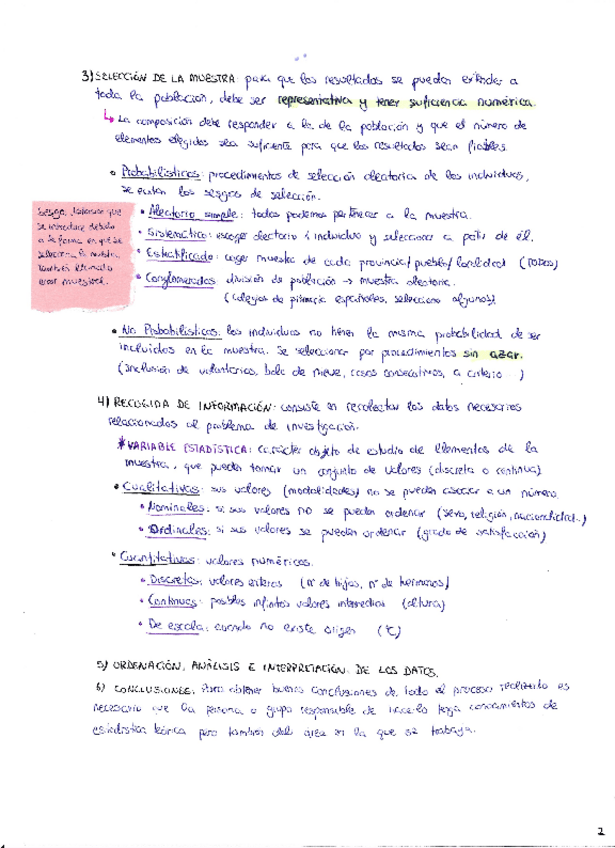 3) SELECCIÓN DE LA MUESTRA para que los resultados se puedan extender a
toda la población, debe ser representativa y tener suficiencia numérica.
↳ La composición debe responder a la de la población y que el número de
elementos elegidos sea suficiente para que los resultados sean fiables.
• Probabilísticos: procedimientos de selección aleatoria de los individuos,
se evitan los sesgos de selección.
• Aleatorio simple: todos podemos pertenecer a la muestra.
• Sistemático: escoger aleatorio 1 individuo y seleccionar a partir de él.
• Estratificado: coger muestra de cada provincia/pueblo/localidad (TODAS)
• Conglomerados división de población → muestra aleatoria.
(colegios de primaria españoles, selecciono algunos)
Sesgo: distorsión que
se introduce debido
a la forma en que se
selecciona la muestra
también llamado
error muestral.
• No Probabilísticos: los individuos no tienen la misma probabilidad de ser
incluidos en la muestra. Se seleccionan por procedimientos sin azar.
(inclusión de voluntarios, bola de nieve, casos consecutivos, a criterio ...)
4) RECOGIDA DE INFORMACIÓN: consiste en recolectar los datos necesarios
relacionados al problema de investigación.
* VARIABLE ESTADÍSTICA: carácter objeto de estudio de elementos de la
muestra, que pueden tomar un conjunto de valores (discreta o continua)
• Cualitativas: sus valores (modalidades) no se pueden asociar a un número.
• Nominales: si sus valores no se pueden ordenar (sexo, religión, nacionalidad..)
• Ordinales: si sus valores se pueden ordenar (grado de satisfacción)
• Cuantitativas: valores numéricos.
• Discretas: valores enteros (nº de hijos, nº de hermanos)
• Continuas: posibles infinitos valores intermedios (altura)
• De escala: cuando no existe origen (ºC)
5) ORDENACIÓN, ANÁLISIS E INTERPRETACIÓN DE LOS DATOS.
6) CONCLUSIONES. Para obtener buenas conclusiones de todo el proceso realizado es
necesario que la persona o grupo responsable de hacerlo tenga conocimientos de
estadística teórica pero también del área en la que se trabaja.
2